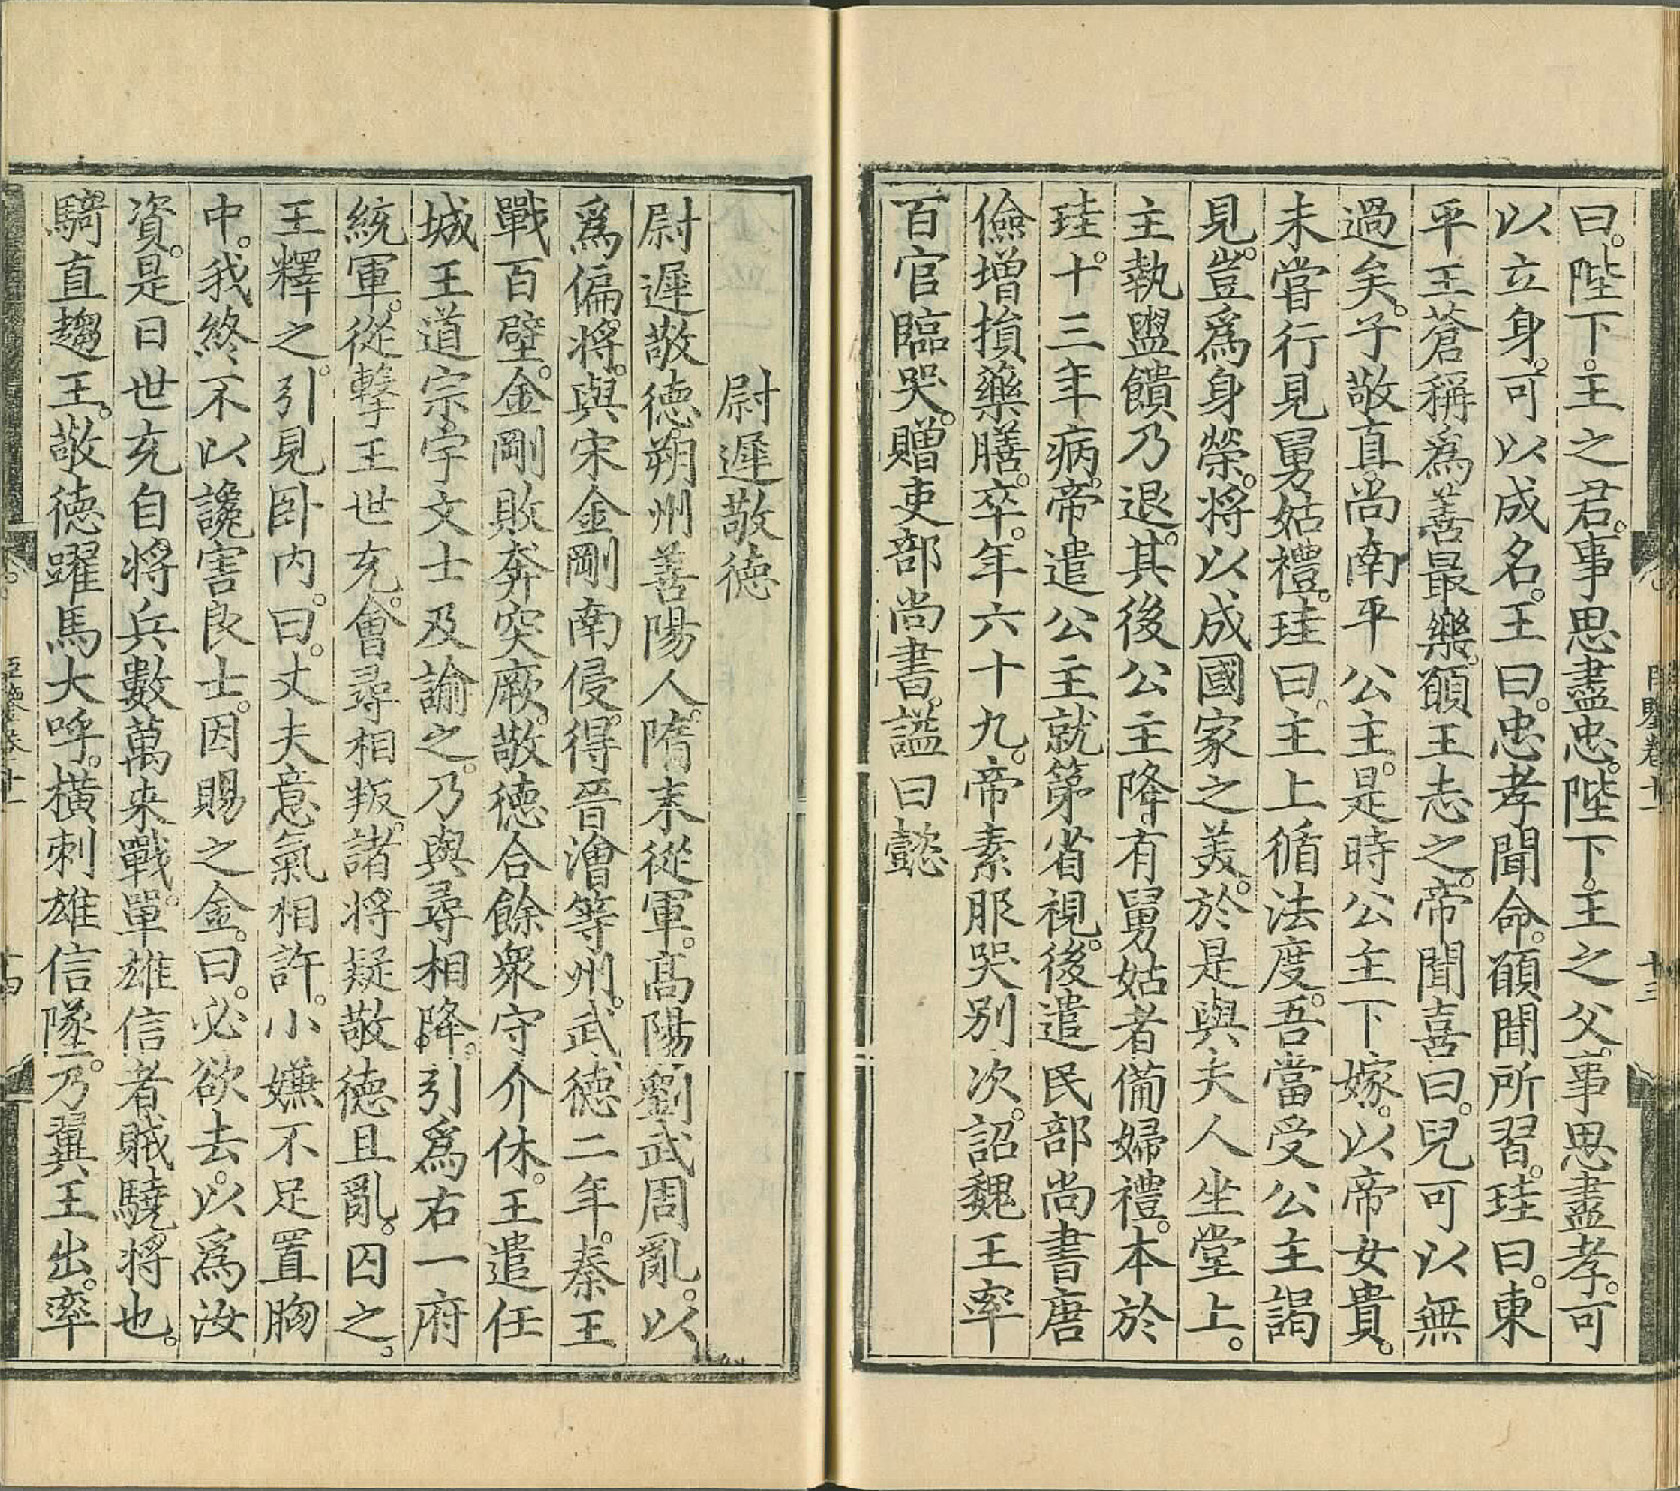 曰。陛下。王之君。事思盡忠。陛下。主之父。事思盡孝。可
以立身。可以成名。王曰。忠孝聞命。願聞所習。珪曰。東
平王蒼稱爲善最樂。願王志之。帝聞喜曰。兒可以無
過矣。子敬直尚南平公主。是時公主下嫁。以帝女貴。
未嘗行見舅姑禮。珪曰。主上循法度。吾當受公主謁
見。豈爲身榮。將以成國家之美。於是與夫人坐堂上。
主執盥饋乃退。其後公主降有舅姑者備婦禮。本於
珪。十三年病。帝遣公主就第省視。後遣民部尚書唐
儉增損藥膳。卒。年六十九。帝素服哭别次。詔魏王率
百官臨哭。贈吏部尚書。謚曰懿
尉遲敬德
尉遲敬德朔州善陽人。隋末從軍。髙陽劉武周亂。以
爲偏將。與宋金剛南侵。得晉澮等州。武德二年。秦王
戰百壁。金剛敗奔突厥。敬德合餘衆守介休。王遣任
城王道宗宇文士及諭之。乃與尋相降。引爲右一府
統軍。從擊王世充。會尋相叛。諸將疑敬德且亂。囚之。
王釋之。引見卧内。曰。丈夫意氣相許。小嫌不足置胸
中。我終不以讒害良士。因賜之金。曰。必欲去。以爲汝
資。是日世充自將兵數萬来戰。單雄信者賊驍將也。
騎直趨王。敬德躍馬大呼。横刺雄信墜。乃翼王出。率